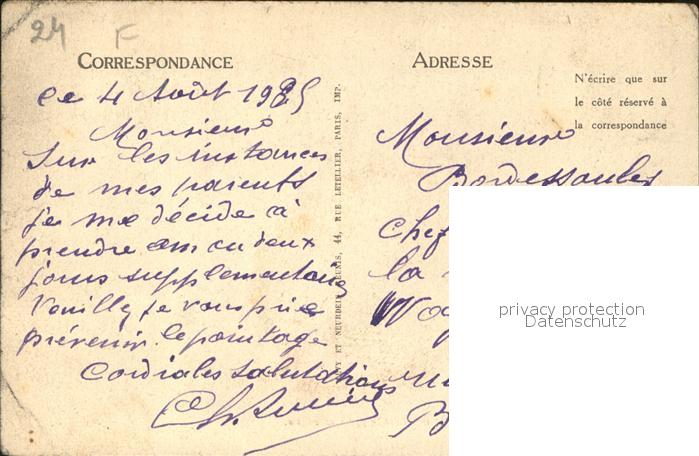 24 F
CORRESPONDANCE
ce 4 Août 1925
Monsieur
Sur les instances
de mes parents
je me décide à
prendre un ou deux
jours supplementaires
Veuillez je vous prie
prévenir le pointage
Cordiales salutations
LEVY ET NEURDEIN REUNIS, 44, RUE LETELLIER, PARIS, IMP.
ADRESSE
N'écrire que sur
le côté réservé à
la correspondance
Monsieur
Bordessoules
Chef
la
privacy protection
Datenschutz